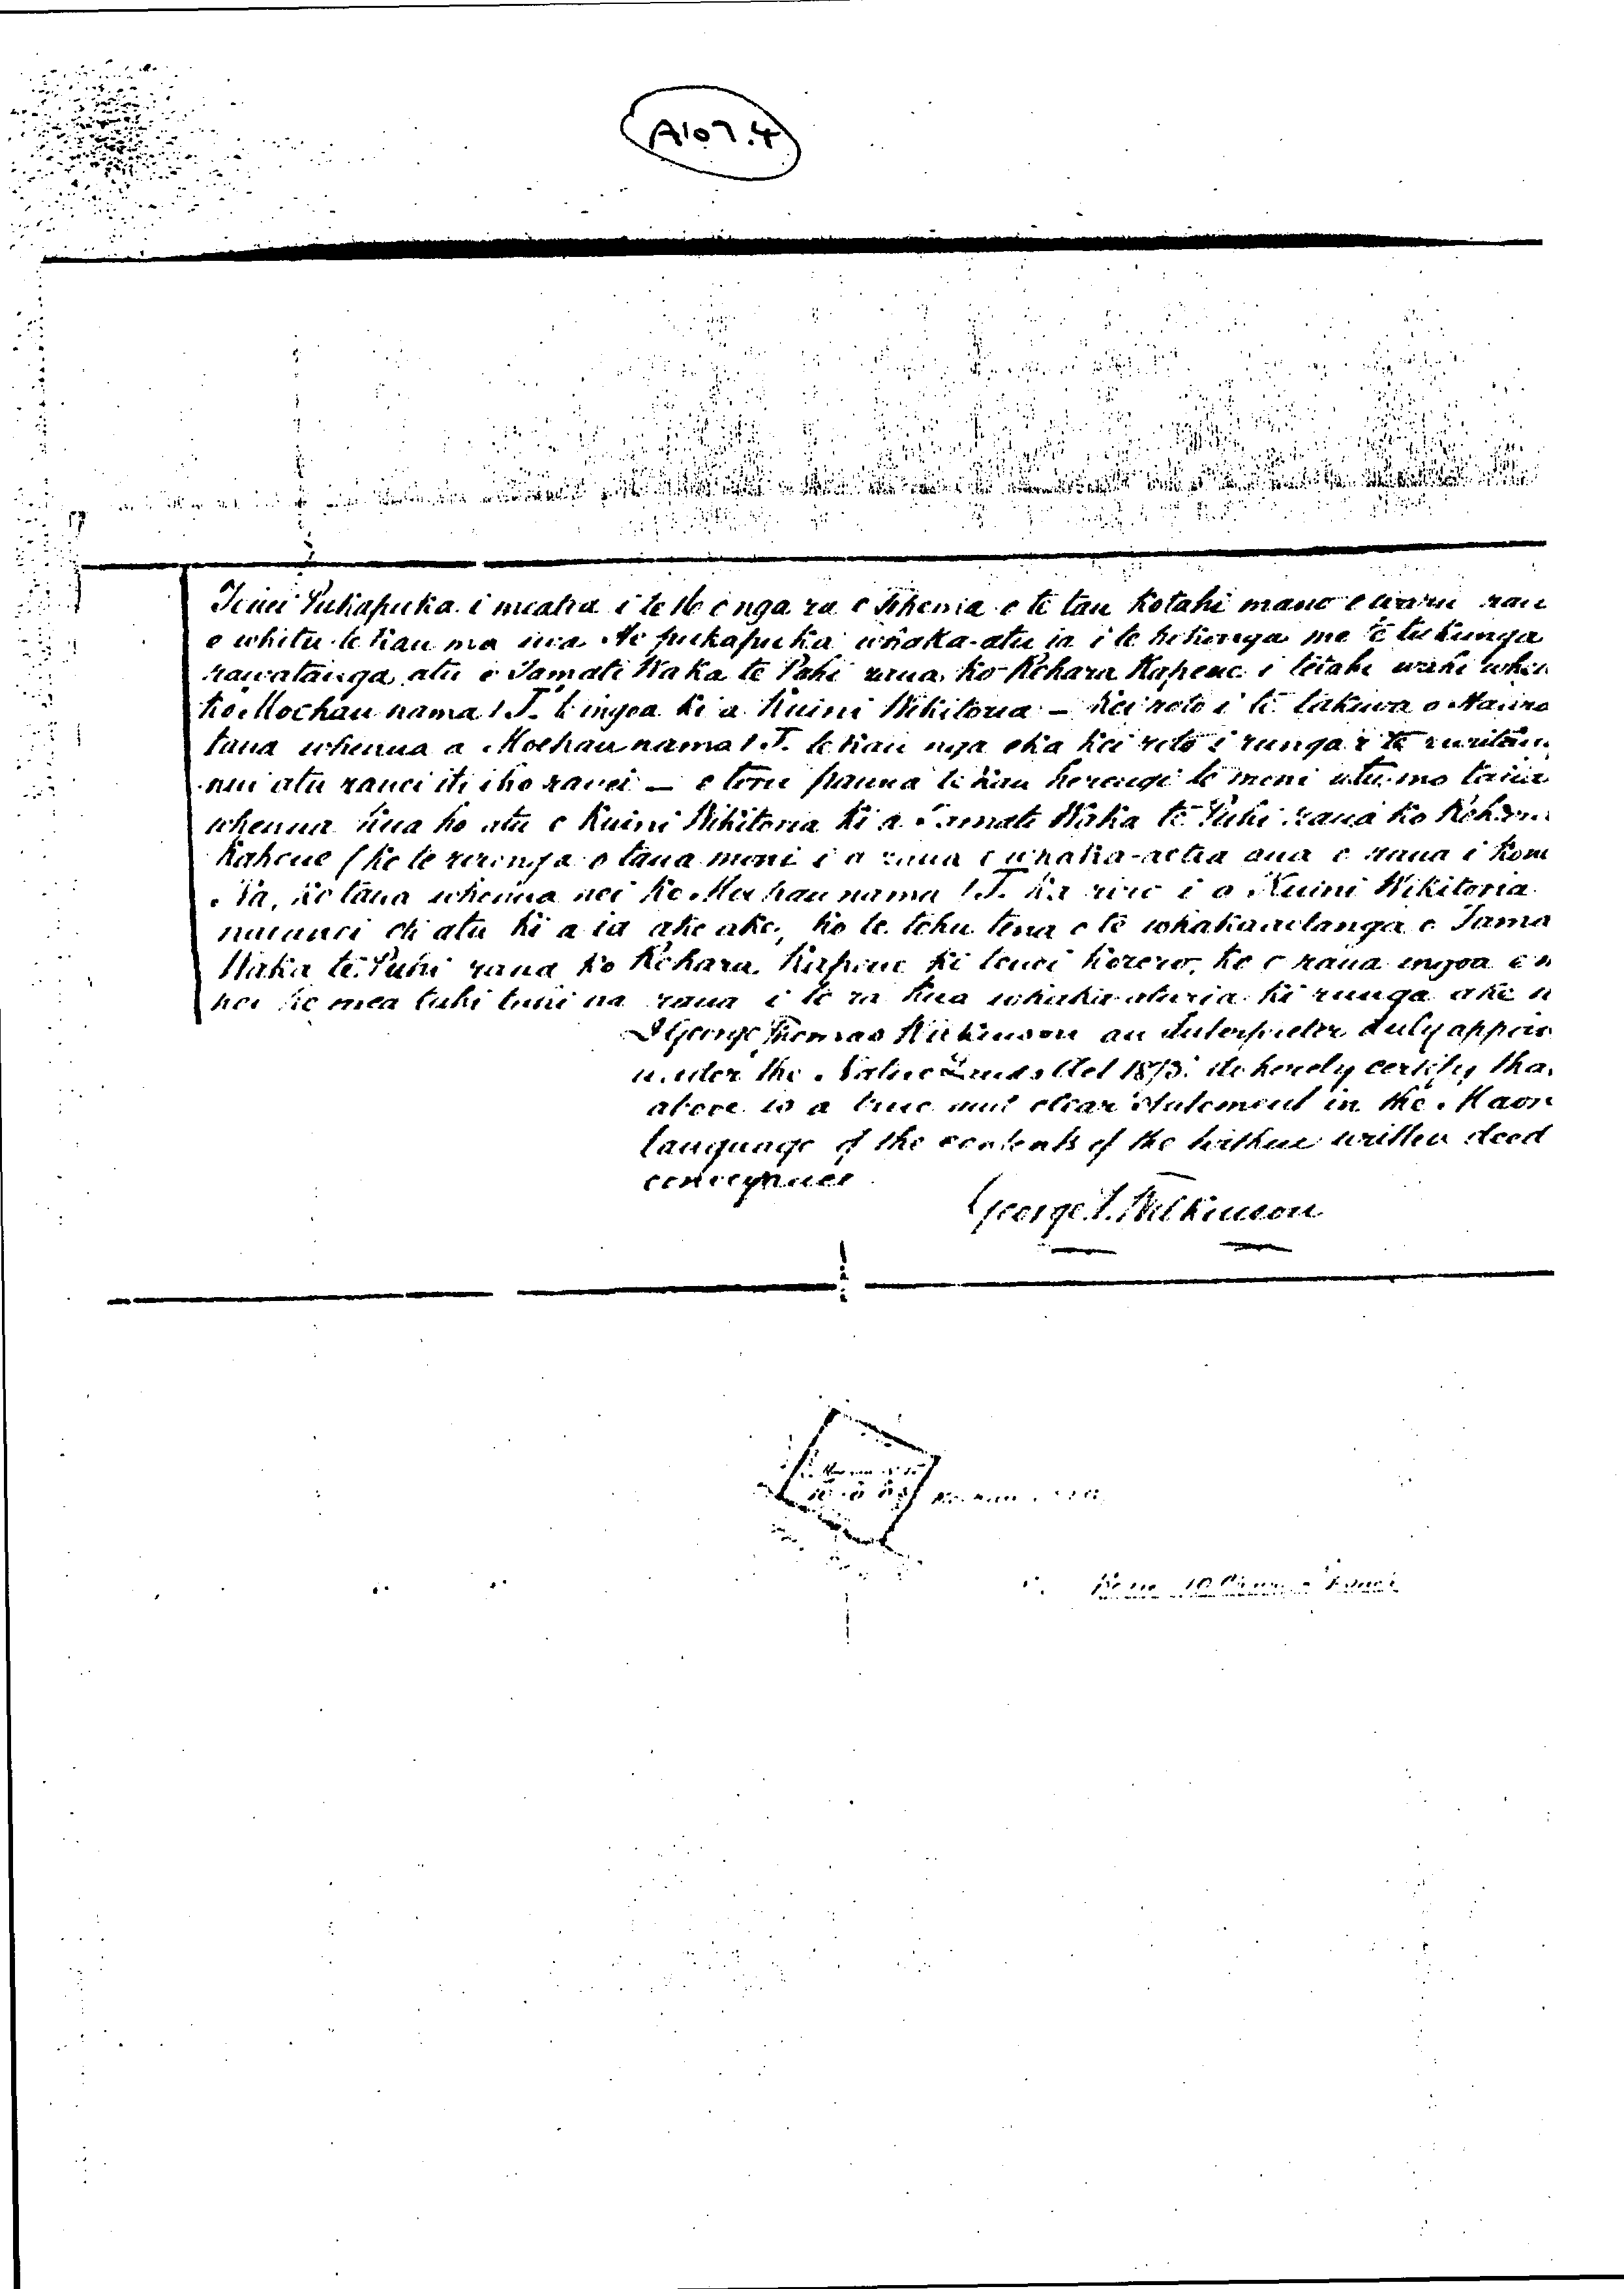 A107.4
Tenei Pukapuka i meatia i te 16 o nga ra o Tihema o te tau kotahi mano e waru rau
e whitu te kau ma iwa He pukapuka whaka-atu ia i te hokonga me te tukunga
rawatanga atu e Tamati Waka te Puhi raua ko Kehara Kapene i tetahi wahi
ko Moehau nama 1 T. te ingoa ki a Kuini Wikitoria — kei roto i te takiwa o
taua whenua a Moehau nama 1 T. te kau nga eka kei roto i runga i te
nui atu ranei iti iho ranei — e toru pauna te kau herengi te moni utu mo taua
whenua kua ho atu e Kuini Wikitoria ki a Tamati Waka te Puhi raua ko
Kapene (ko te rironga o taua moni i a raua e whaka-aetia ana e raua i
Na, ko taua whenua nei ko Moehau nama 1 T. ka riro i a Kuini Wikitoria
naianei oti atu ki a ia ake ake, ko te tohu tena o te whakaaetanga o Tama
Waka te Puhi raua ko Kehara Kapene ki tenei korero, ko o raua ingoa
nei he mea tuhi tuhi na raua i te ra kua whakaaturia ki runga ake n
I George Thomas Wilkinson an Interpreter duly appoin
under the Native Lands Act 1873 do hereby certify tha
above is a true and clear statement in the Maori
language of the contents of the within written deed
conveyance
George T. Wilkinson